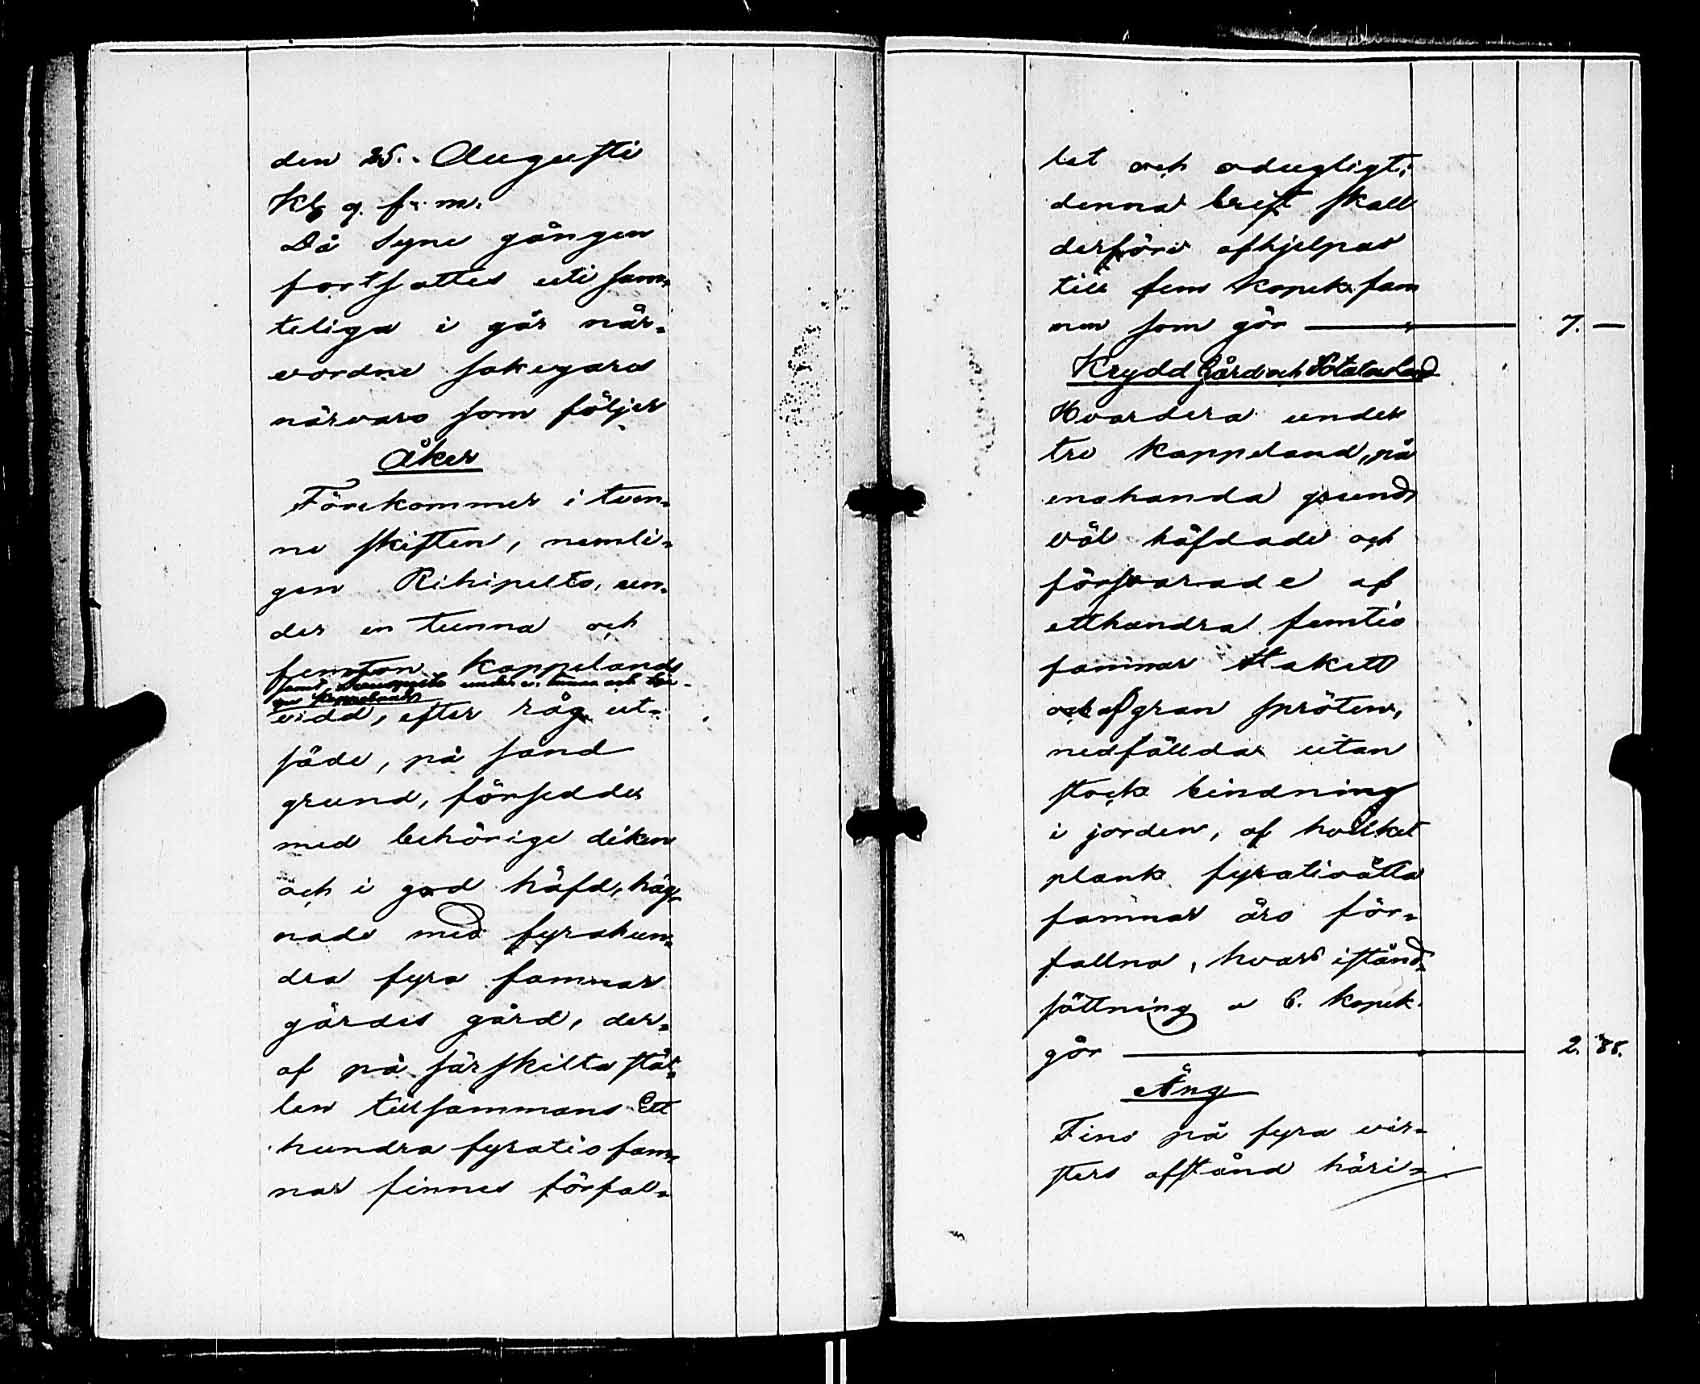 den 25. Augusti
Kl 9 f. m.
Då Syne gången
fortsattes uti sam-
teliga i går när-
vordne sakegares
närvaro som följer
Åker
Förekommer i tven-
ne skiften, nemli-
gen Rihipelto, un-
der en tunna och
femton kappelands
samt under en tunna och
kappelands
vidd, efter råg ut-
säde, på sand
grund, försedde
med behörige diken
och i god häfd, häg-
nade med fyrahun-
dra fyra famnar
gärdes gård, der-
af på särskilta stäl-
len tillsammans Ett
hundra fyratio fam-
nar finnes förfal-
let och odugligt;
denna brist skall
derföre afhjelpas
till fem kopek fam
nen som gör — 7. —
Krydd Gård och Potatesland
Hvardera under
tre kappeland, på
enahanda grund
väl häfdade och
försvarade af
etthundra femtio
famnar stakett
och af gran spröten,
nedfällda utan
stock bindning
i jorden, af hvilket
plank fyratioåtta
famnar äro för-
fallna, hvars istånd-
sättning a 6. kopek
gör — 2. 88.
Äng
Fins på fyra vir-
sters afstånd häri-